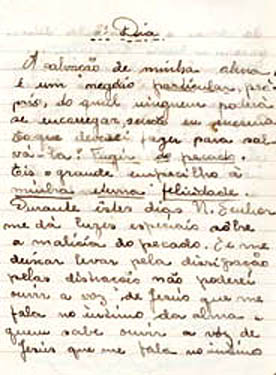 2º Dia
A salvação de minha alma,
é um negócio particular, pró-
prio, do qual ninguem poderá
se encarregar, senão eu mesma
O que deverei fazer para sal-
vá-la? Fugir do pecado.
Eis o grande empecilho à
minha eterna felicidade.
Durante êstes dias N. Senhor
me dá luzes especiais sôbre
a malícia do pecado. Se me
deixar levar pela dissipação
pelas distrações não poderei
ouvir a voz de Jesus que me
fala no íntimo da alma e
quem sabe ouvir a voz de
Jesus que me fala no íntimo